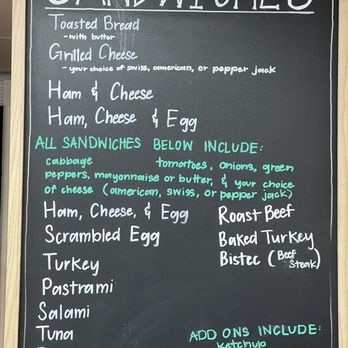 SANDWICHES
Toasted Bread
- with butter
Grilled Cheese
- your choice of swiss, american, or pepper jack
Ham & Cheese
Ham, Cheese & Egg
ALL SANDWICHES BELOW INCLUDE:
cabbage tomatoes, onions, green
peppers, mayonnaise or butter, & your choice
of cheese (american, swiss, or pepper jack)
Ham, Cheese, & Egg
Scrambled Egg
Turkey
Pastrami
Salami
Tuna
Roast Beef
Baked Turkey
Bistec (Beef Steak)
ADD ONS INCLUDE:
ketchup